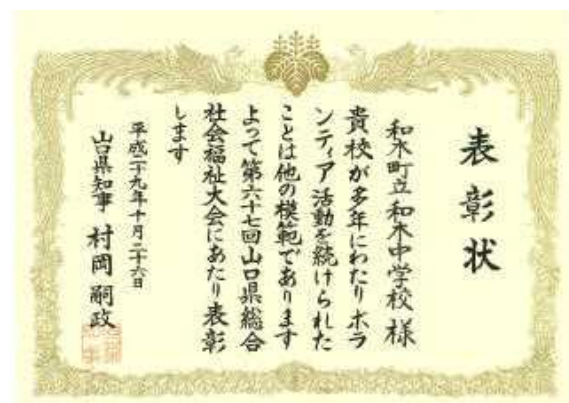 表彰状
和木町立和木中学校様
貴校が多年にわたりボラ
ンティア活動を続けられた
ことは他の模範であります
よって第六十七回山口県総合
社会福祉大会にあたり表彰
します
平成二十九年十月二十六日
山口県知事 村岡嗣政